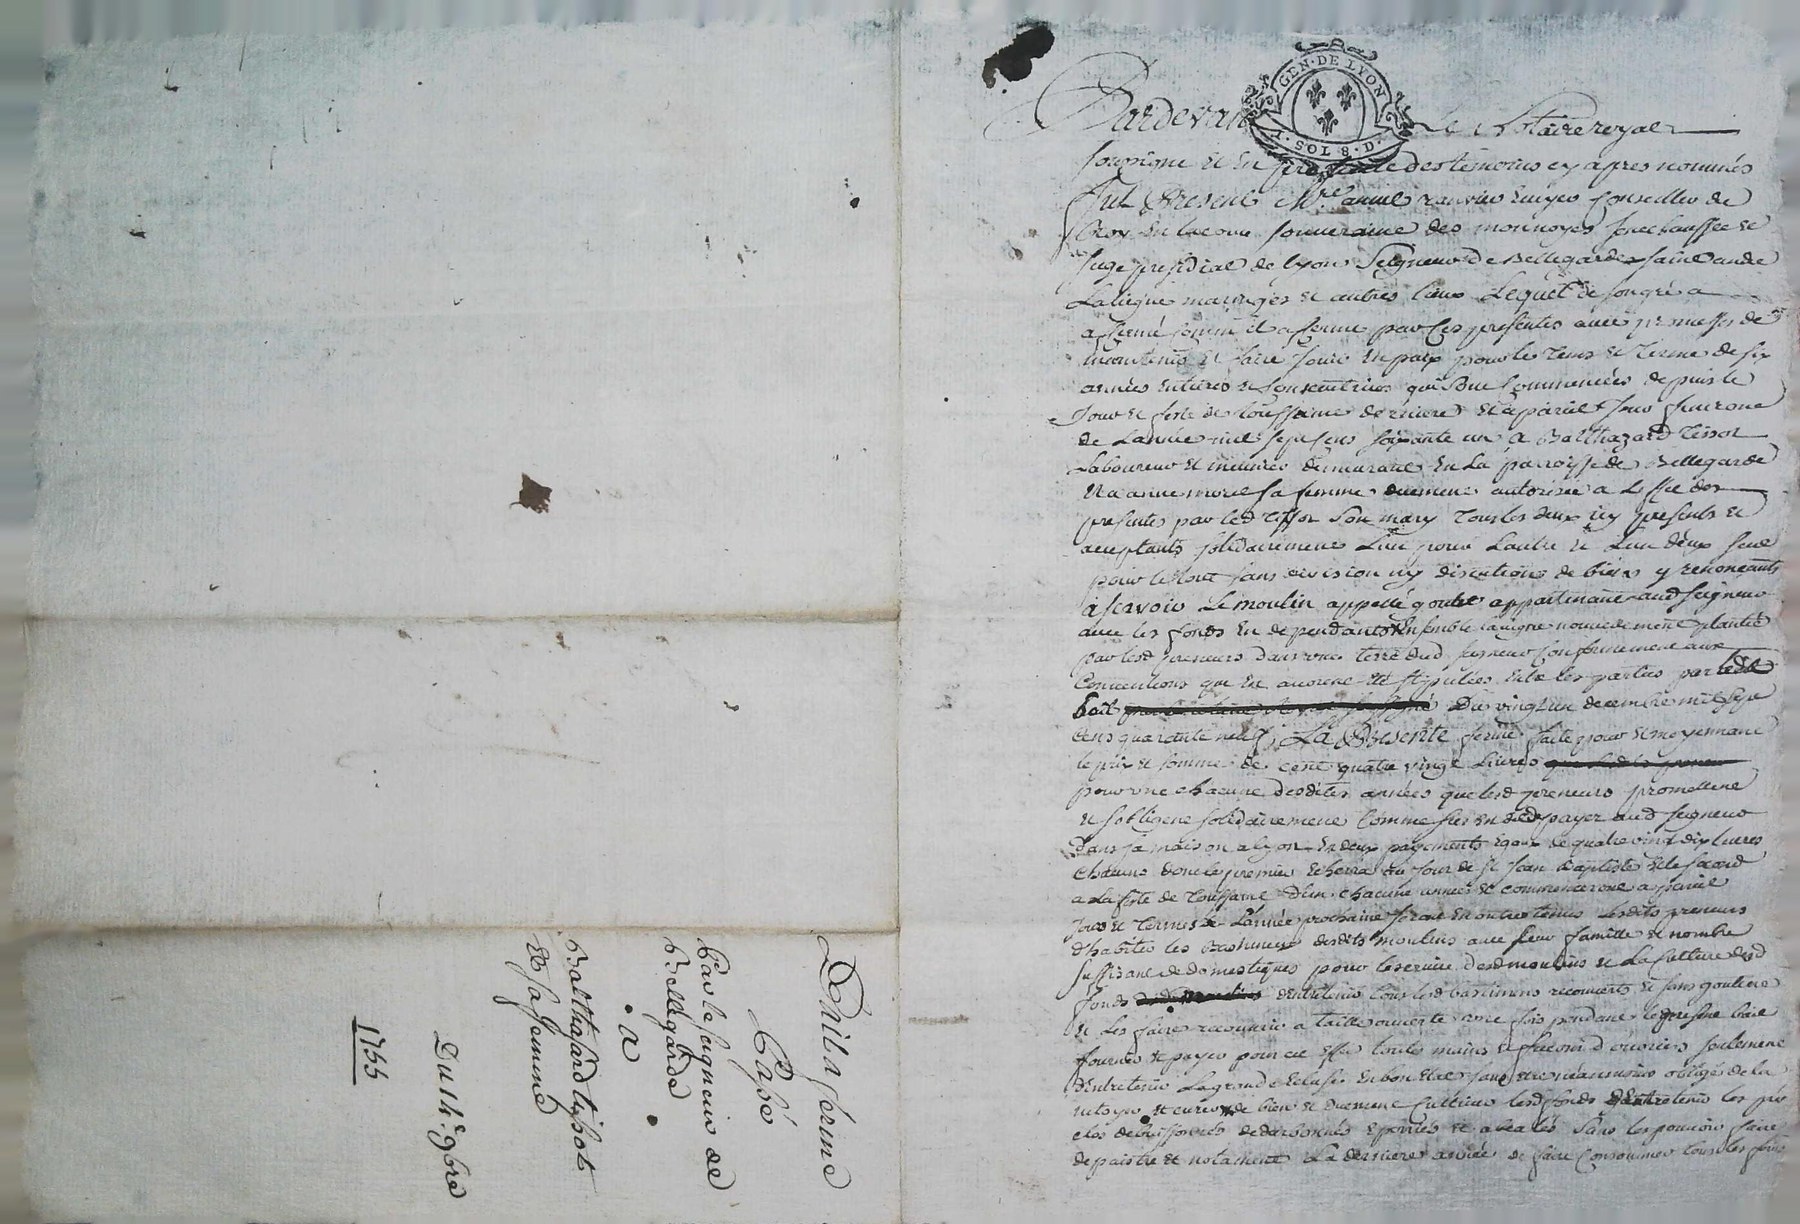 GEN. DE LYON
1. SOL 8. D.
Pardevant Le Notaire royal
soussigné et en presence des temoins cy apres nommés
fut Present Mre annib ranvier ecuyer Conseiller du
Roy en la cour souveraine des monnoyes senechaussée et
siege presidial de Lyon Seigneur de Bellegarde saint andré
et autres lieux Lequel de son gré a
affermé comme il afferme par ces presentes avec promesses de
maintenir et faire jouir en paix pour le tems et terme de six
années entieres et consecutives qui ont commencées depuis le
Jour et feste de Toussaint derniere et a pareil jour finiront
de Lannée mil sept cens soixante un a Balthazard Tissot
Laboureur et meunier demeurant en La paroisse de Bellegarde
et a anne morel sa femme duement autorisée a Leffet des
presentes par led Tissot son mary Tous les deux icy presents et
acceptants solidairement Lun pour Lautre et Lun deux seul
pour le tout sans division ny discution de biens y renonceants
a scavoir Le moulin appellé goutte appartenant aud seigneur
avec les fonds en dependants Ensemble la vigne nouvellement plantée
par lesd preneurs dans une terre dud seigneur Conformement aux
Conventions qui en auroient eté stipulées entre les parties par led
bail Du vingt un decembre mil sept
cens quarante neuf, La Presente ferme faite pour et moyennant
le prix et somme de cent quatre vingt Livres
pour une chacune desdites années que lesd preneurs promettent
et sobligent solidairement comme sus est dit payer aud seigneur
dans sa maison a Lyon en deux payements egaux de quatre vingt dix livres
chacun dont le premier echerra au jour de St Jean Baptiste et le second
a la feste de Toussaint d'une chacune année et commenceront a pareil
Jour et Termes de Lannée prochaine seront en outre tenus Lesdits preneurs
d'habiter les Bastiments desdits moulins avec leur famille et nombre
suffisant de domestiques pour le service desd moulins et La Culture desd
fonds d'Entretenir tous lesd bastiments recouverts et sans goutiere
et Les faire recouvrir a taille ouverte une fois pendant le present bail
fournir et payer pour cet effet toutes mains et façons d'ouvriers seulement
d'entretenir La grande Ecluse en bon Etat sans etre neanmoins obligés de la
nétoyer et curer de bien et duement cultiver lesd fonds d'Entretenir les prés
clos de buissons
de paistre et notament La derniere année et faire Consommer tous les foins
Bail a ferme
Passé
Par le seigneur de
Bellegarde
a
Balthasard tissot
Et sa femme
Du 14e. 9bre
1755